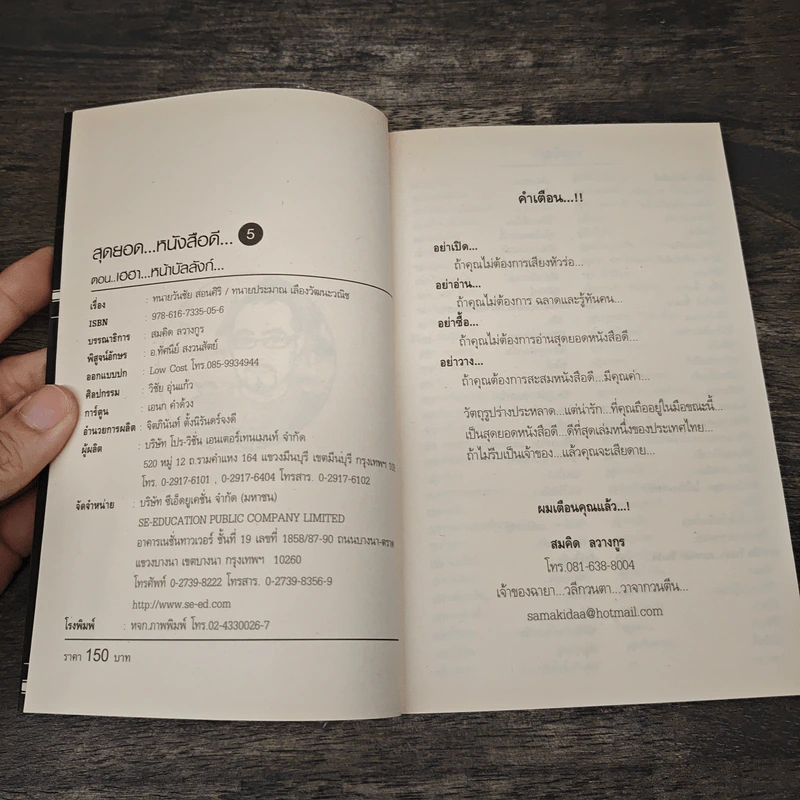 สุดยอด...หนังสือดี... 5
ตอน...เฮฮา...หน้าบัลลังก์...
เรื่อง : ทนายวันชัย สอนศิริ / ทนายประมาณ เลืองวัฒนะวณิช
ISBN : 978-616-7335-05-6
บรรณาธิการ : สมคิด ลวางกูร
พิสูจน์อักษร : อ.ทัศนีย์ สงวนสัตย์
ออกแบบปก : Low Cost โทร.085-9934944
ศิลปกรรม : วิชัย อุ่นแก้ว
การ์ตูน : เอนก คำด้วง
อำนวยการผลิต : จิตภินันท์ ตั้งนิรันดร์จงดี
ผู้ผลิต : บริษัท โปร-วิชั่น เอนเตอร์เทนเมนท์ จำกัด
520 หมู่ 12 ถ.รามคำแหง 164 แขวงมีนบุรี เขตมีนบุรี กรุงเทพฯ
โทร. 0-2917-6101 , 0-2917-6404 โทรสาร. 0-2917-6102
จัดจำหน่าย : บริษัท ซีเอ็ดยูเคชั่น จำกัด (มหาชน)
SE-EDUCATION PUBLIC COMPANY LIMITED
อาคารเนชั่นทาวเวอร์ ชั้นที่ 19 เลขที่ 1858/87-90 ถนนบางนา-ตราด
แขวงบางนา เขตบางนา กรุงเทพฯ 10260
โทรศัพท์ 0-2739-8222 โทรสาร. 0-2739-8356-9
http://www.se-ed.com
โรงพิมพ์ : หจก.ภาพพิมพ์ โทร.02-4330026-7
ราคา 150 บาท
คำเตือน...!!
อย่าเปิด...
ถ้าคุณไม่ต้องการเสียงหัวร่อ...
อย่าอ่าน...
ถ้าคุณไม่ต้องการ ฉลาดและรู้ทันคน...
อย่าซื้อ...
ถ้าคุณไม่ต้องการอ่านสุดยอดหนังสือดี...
อย่าวาง...
ถ้าคุณต้องการสะสมหนังสือดี...มีคุณค่า...
วัตถุรูปร่างประหลาด...แต่น่ารัก...ที่คุณถืออยู่ในมือขณะนี้...
เป็นสุดยอดหนังสือดี...ดีที่สุดเล่มหนึ่งของประเทศไทย...
ถ้าไม่รีบเป็นเจ้าของ...แล้วคุณจะเสียดาย...
ผมเตือนคุณแล้ว...!
สมคิด ลวางกูร
โทร.081-638-8004
เจ้าของฉายา...วลีกวนตา...วาจากวนตีน...
samakidaa@hotmail.com